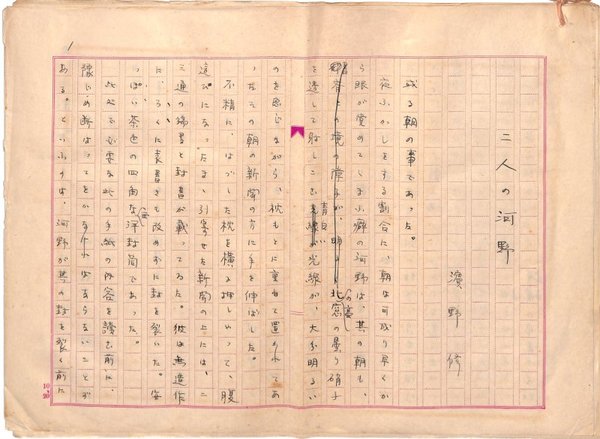 二人の河野
濱野修
或る朝の事であった。
夜ふかしをする割合に、朝は可成り早くか
ら眼が覚めてしまふ癖の河野は、其の朝も、
北窓の曇り硝子
を透して射しこむ青白い光線が、大分明るい
のを感じながら、枕もとに重ねて置かれてあ
ったその朝の新聞の方に手を伸ばした。
不精に、はづした枕を横に押しやって、腹
這ひになったまゝ引寄せた新聞の上には、二
三通の端書と封書が載ってゐた。彼は無造作
に、ろくに表書きも改めずに封を裂いた。安
っぽい茶色の四角な洋封筒であった。
此処で必要な此の手紙の内容を読む前に、
豫じめ断はってをかなければならないことが
ある。といふのは、河野が其の封を裂く前に
1
10.20